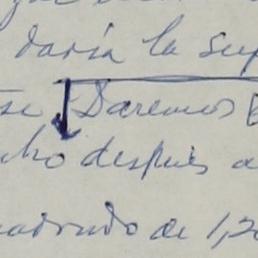 daría la sup
se Daremos
cho después a
uadrado de 1,20